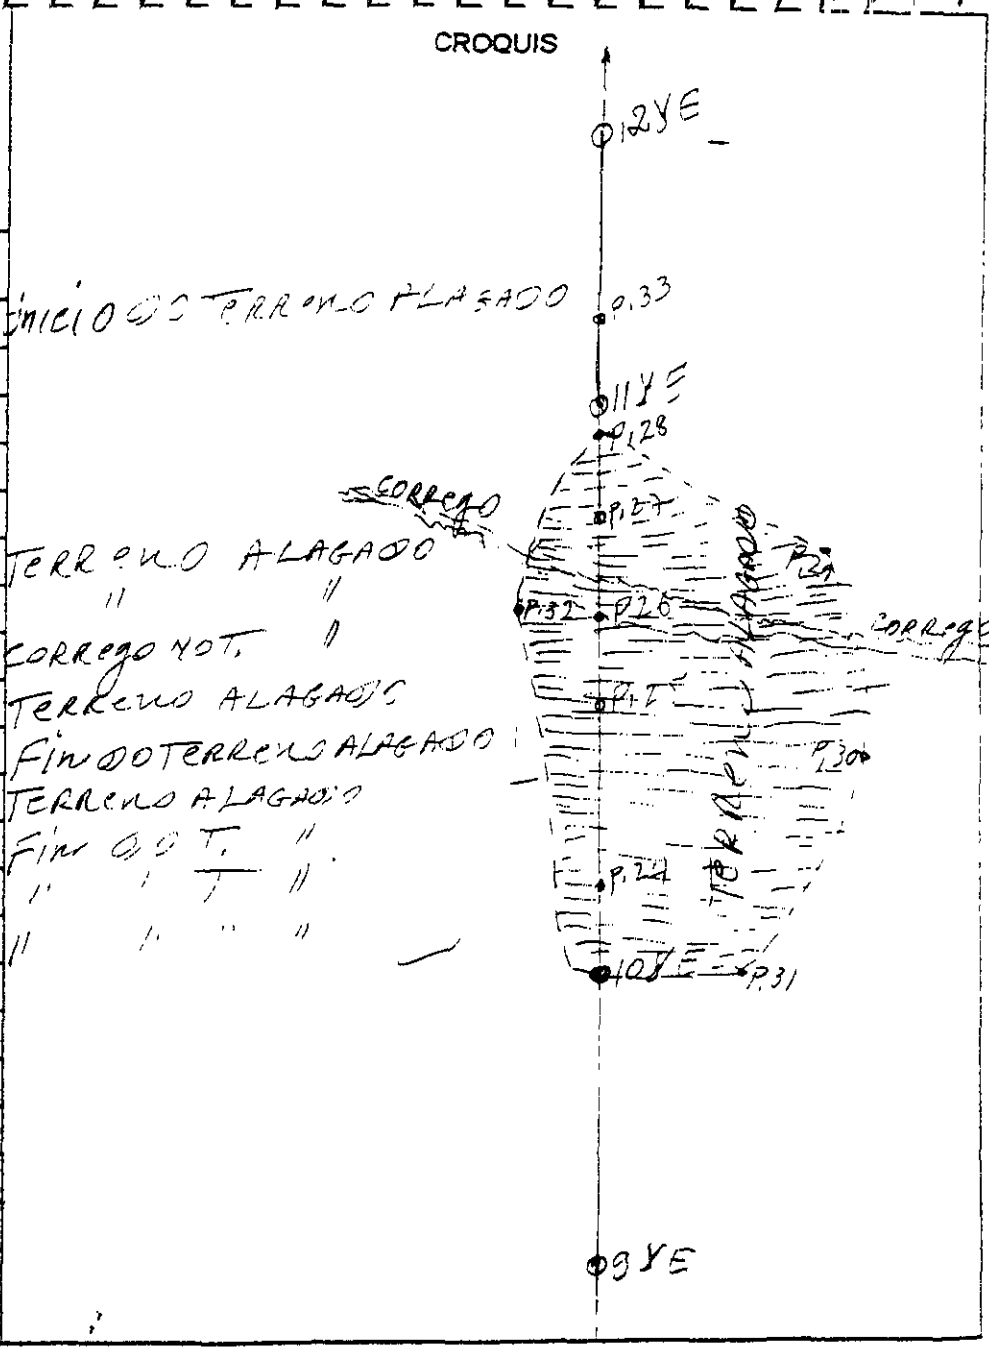 CROQUIS
12YE
INICIO DO TERRENO ALAGADO
P.33
11YE
P.28
CORREGO
P.27
TERRENO ALAGADO
P.29
" "
P.32
P.26
CORREGO
CORREGO "
TERRENO ALAGADO
FIM DO TERRENO ALAGADO
P.30
TERRENO ALAGADO
TERRENO ALAGADO
FIM DO T. "
P.24
" " "
" " " "
10YE
P.31
9YE